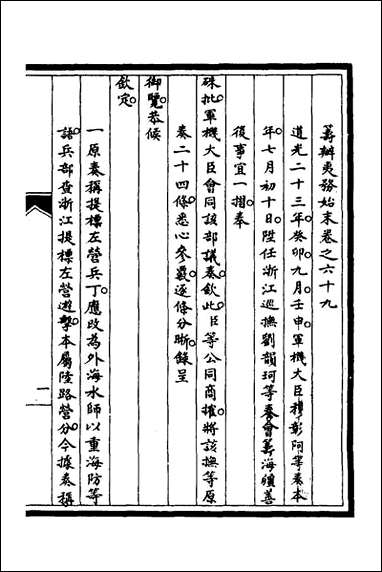 籌辦夷務始末卷之六十九
道光二十三年癸卯九月壬申軍機大臣穆彰阿等奏本
年七月初十日陞任浙江巡撫劉韻珂等奏會籌海疆善
後事宜一摺奉
硃批軍機大臣會同該部議奏欽此臣等公同商搉將該撫等原
奏二十四條悉心參覈逐條分晰錄呈
御覽恭候
欽定
一原奏稱提標左營兵丁應改為外海水師以重海防等
語兵部查浙江提標左營遊擊本屬陸路營分今據奏稱
一